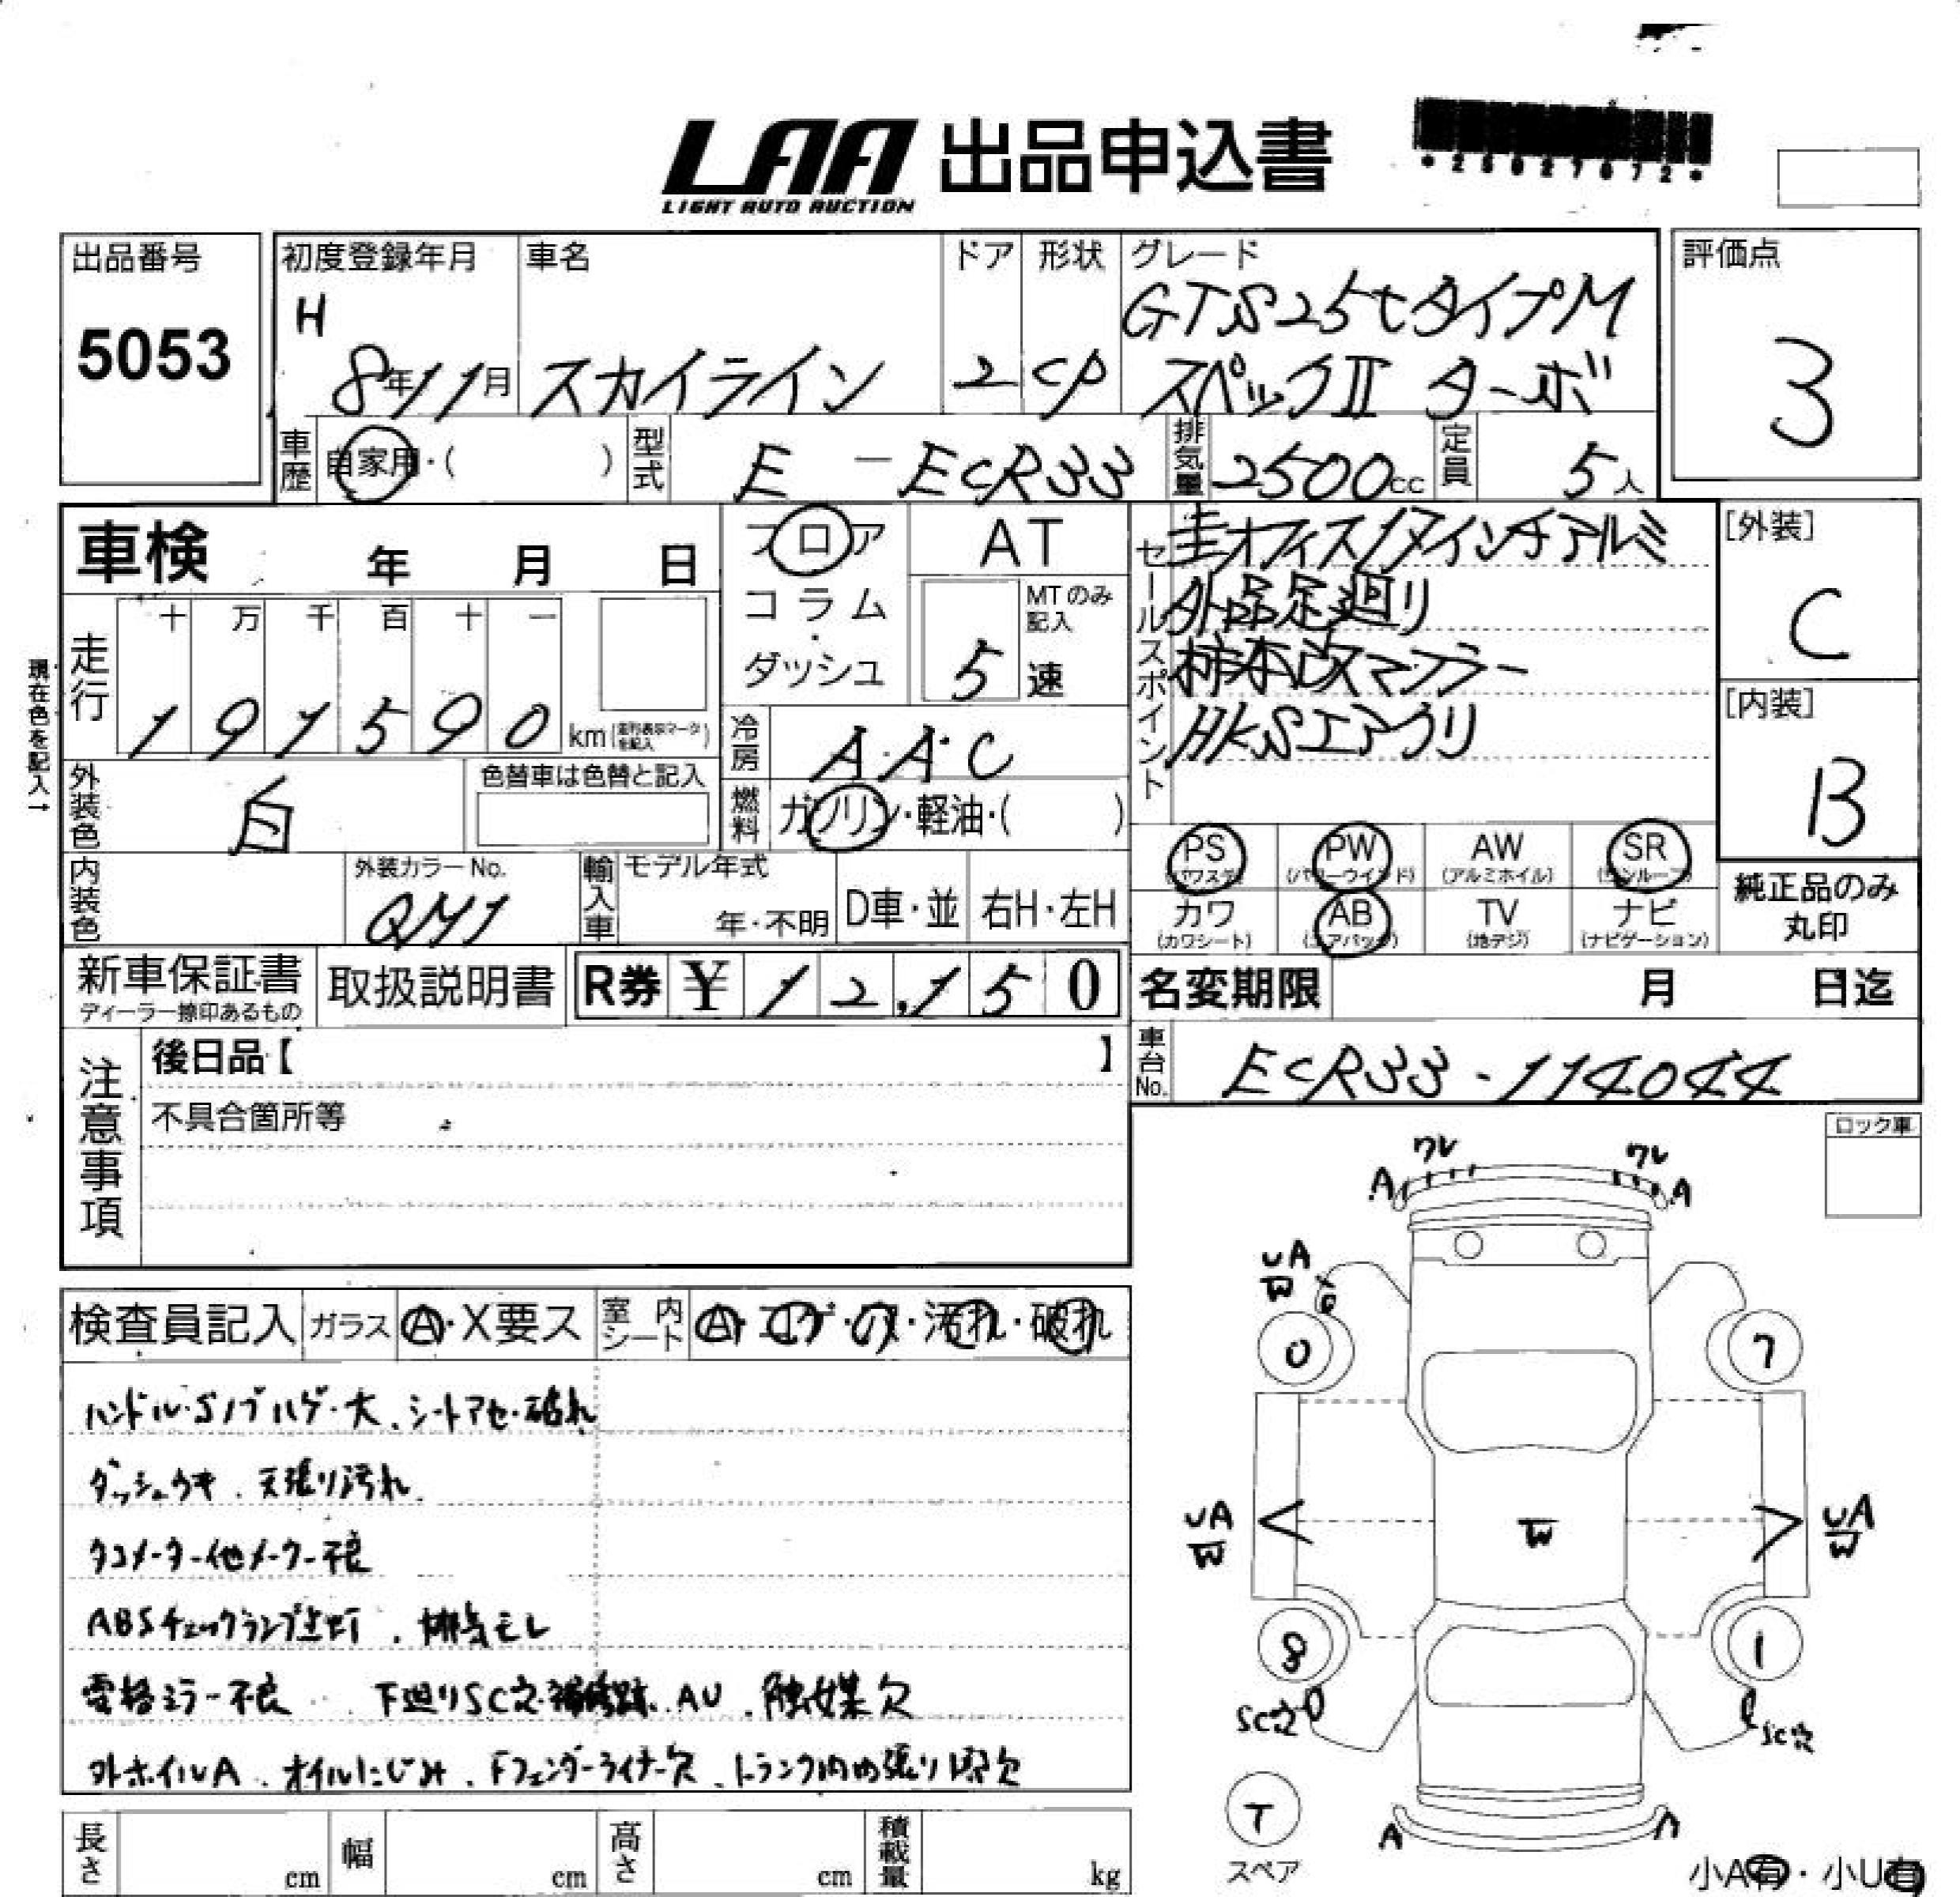 LAA 出品申込書
LIGHT AUTO AUCTION
出品番号
5053
初度登録年月
H
8年11月
車名
スカイライン
ドア
2
形状
CP
グレード
GTS25tタイプM
スペックII ターボ
評価点
3
車歴
自家用・( )
型式
E - ECR33
排気量
2500cc
定員
5人
車検 年 月 日
フロア
コラム
・
ダッシュ
AT
MTのみ
記入
5 速
セールスポイント
圭オフィス17インチアルミ
外品足廻り
柿本改マフラー
HKSエアクリ
[外装]
C
[内装]
B
現在色を記入→
走行
十 万 千 百 十 一
1 9 1 5 9 0 km
冷房
A・A・C
外装色
白
色替車は色替と記入
燃料
ガソリン・軽油・( )
PS
(パワステ)
PW
(パワーウインド)
AW
(アルミホイル)
SR
(サンルーフ)
カワ
(カワシート)
AB
(エアバッグ)
TV
(地デジ)
ナビ
(ナビゲーション)
純正品のみ
丸印
内装色
外装カラーNo.
QM1
輸入車
モデル年式
年・不明
D車・並
右H・左H
新車保証書
ディーラー捺印あるもの
取扱説明書
R券 ¥ 12,150
名変期限 月 日迄
注意事項
後日品【 】
不具合箇所等
車台No.
ECR33-114044
ロック車
検査員記入
ガラス
A・X要ス
室内シート
A・コゲ・穴・汚れ・破れ
ハンドル・Sノブハゲ・大、シートアセ・破れ
ダッシュウキ、天張り汚れ
タコメーター他メーター不良
ABSチェックランプ点灯、排気モレ
電格ミラー不良 下廻りSC穴・補修跡、AU、触媒欠
外ホイルA、オイルにじみ、Fフェンダーライナー欠、トランク内内張り欠
ワレ
ワレ
A
A
UA
W
0
7
UA
W
W
UA
W
8
1
SC穴
SC穴
T
スペア
A
A
小A有・小U有
長さ cm
幅 cm
高さ cm
積載量 kg